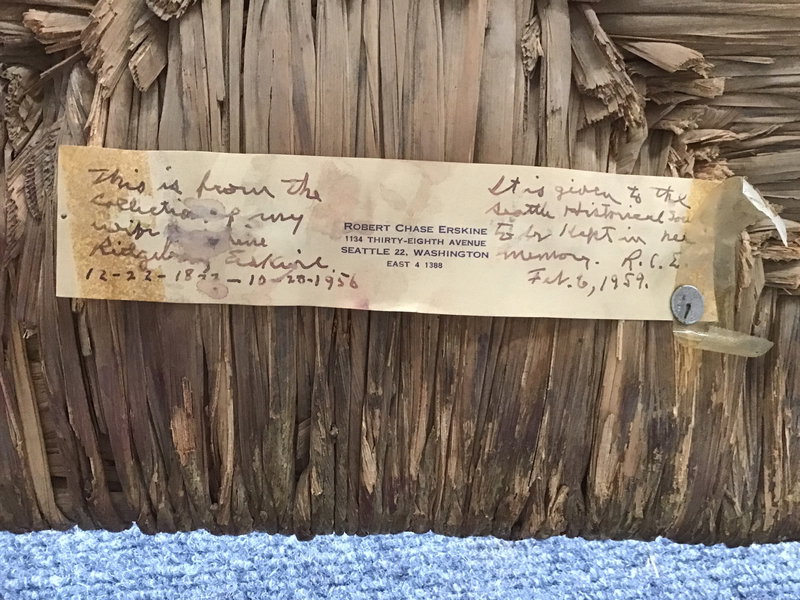 This is from the
collection of my
wife
Ridgeway Erskine.
12-22-18 - 10-28-1956
ROBERT CHASE ERSKINE
1134 THIRTY-EIGHTH AVENUE
SEATTLE 22, WASHINGTON
EAST 4 1388
It is given to the
Seattle Historical Soc
to be kept in her
memory. R.C.E.
Feb. 6, 1959.